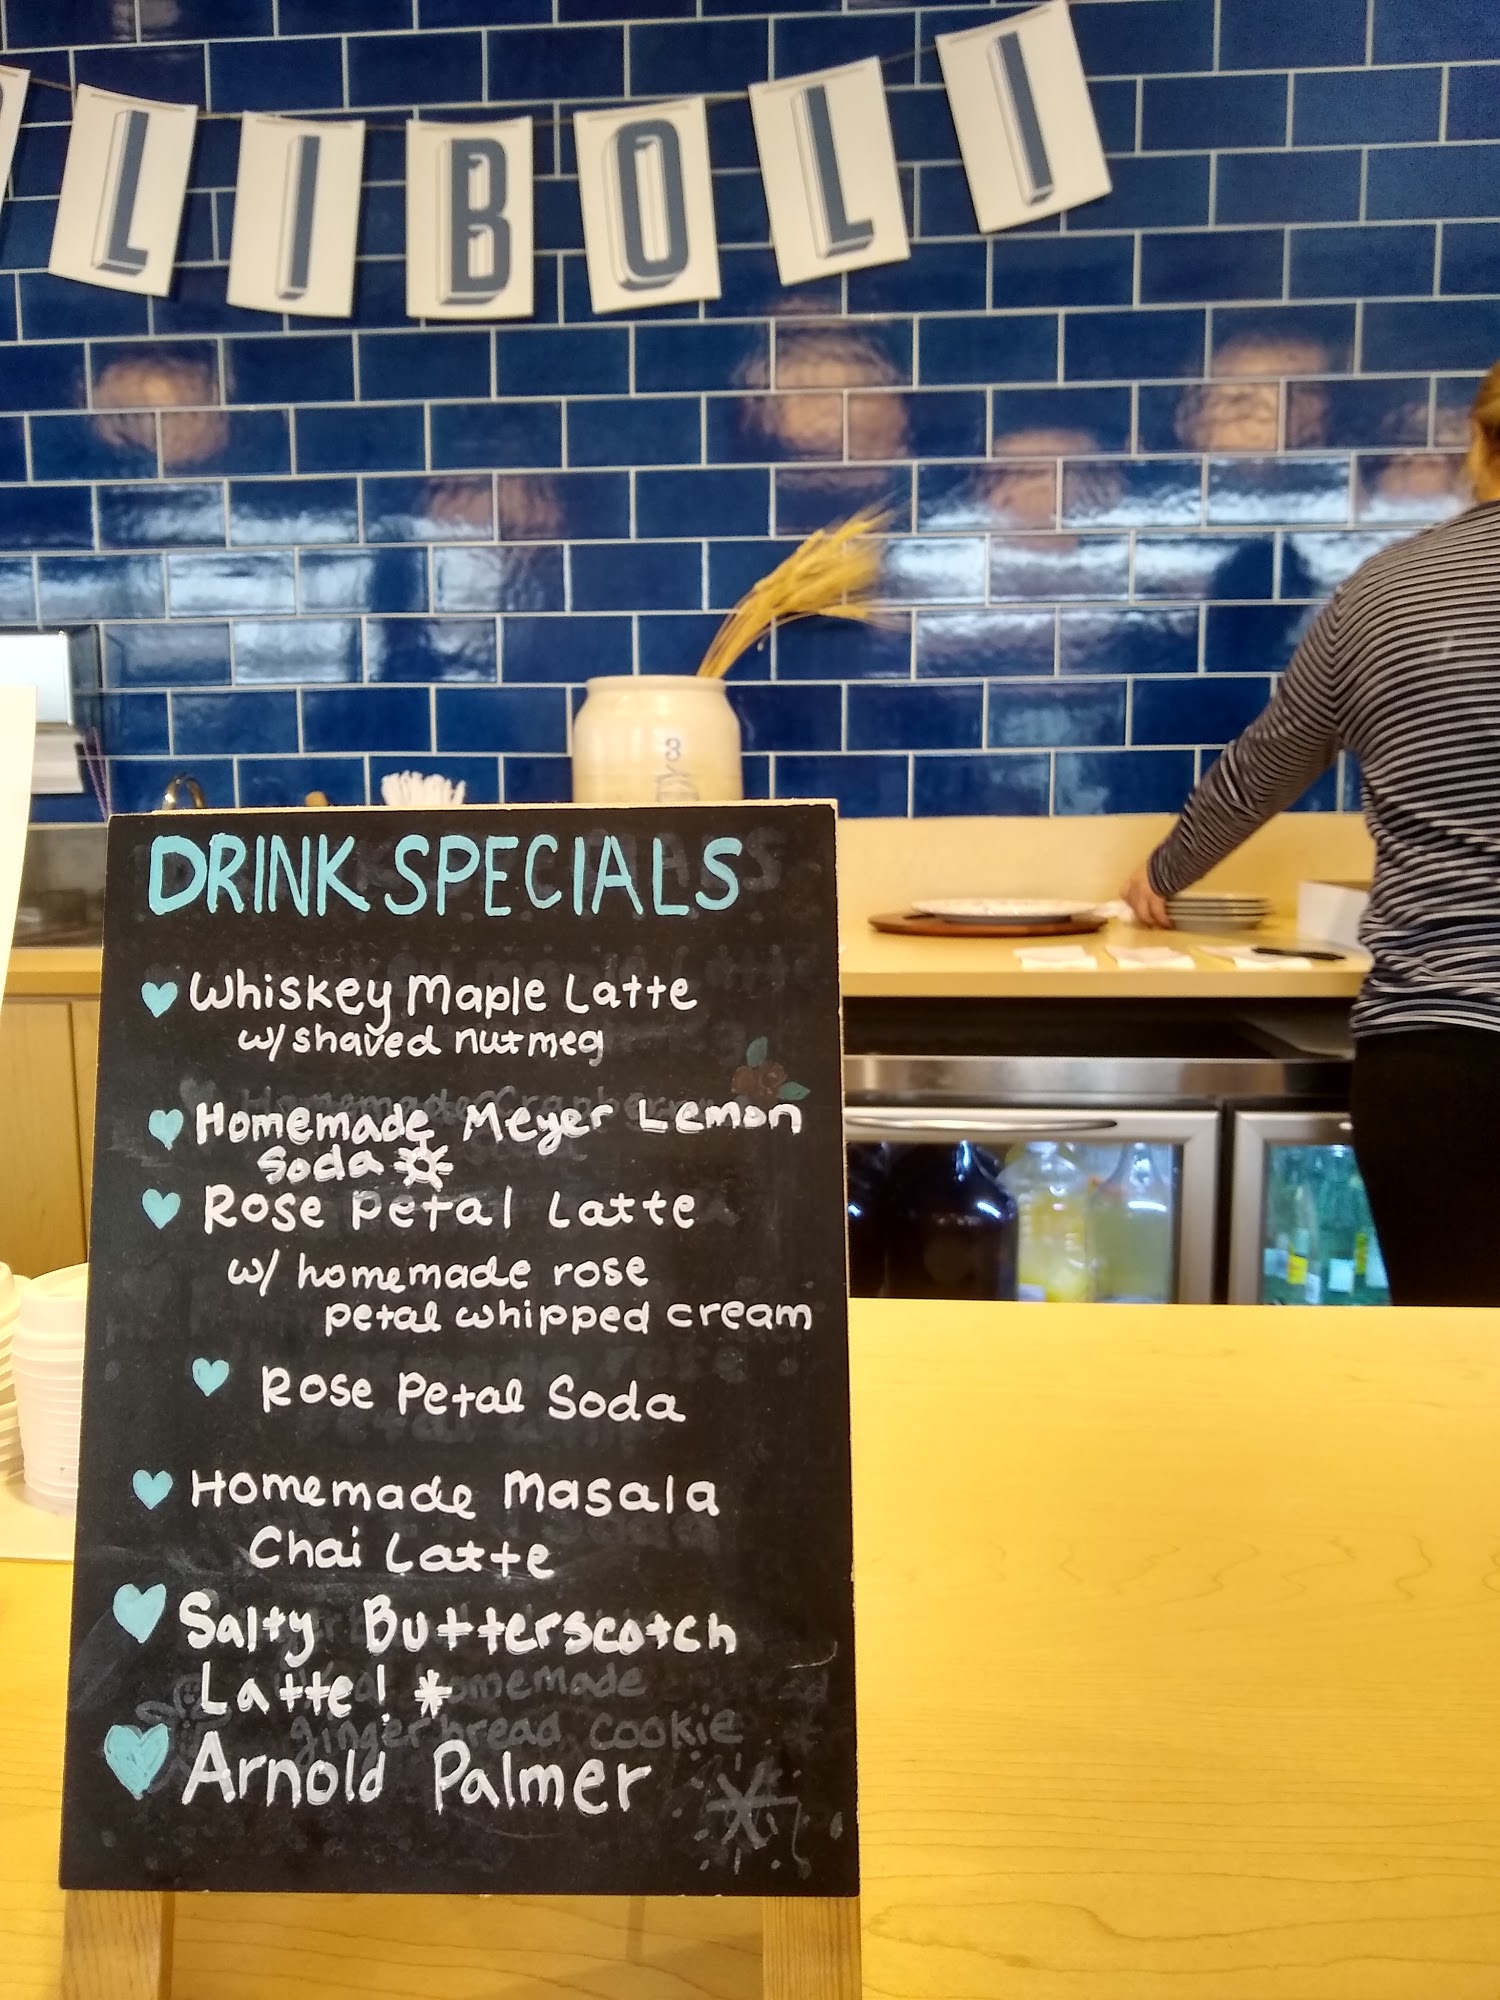 LIBOLI
8
DRINK SPECIALS
Whiskey Maple Latte
w/ shaved nutmeg
Homemade Meyer Lemon
Soda
Rose Petal Latte
w/ homemade rose
petal whipped cream
Rose Petal Soda
Homemade Masala
Chai Latte
Salty Butterscotch
Latte!
homemade
gingerbread cookie
Arnold Palmer